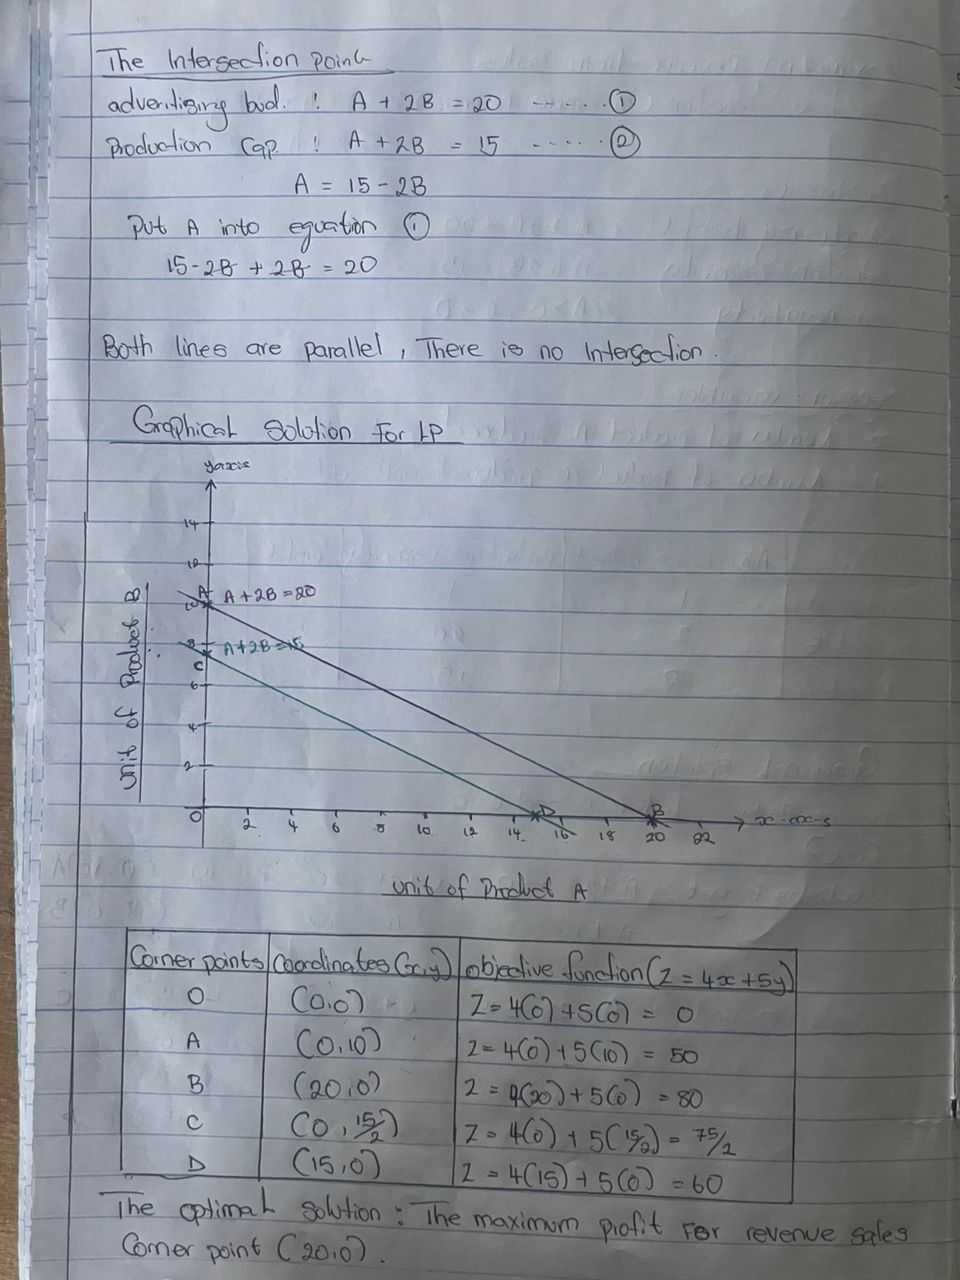 The Intersection point
advertising bud. : A + 2B = 20 ------ ①
Production Cap. : A + 2B = 15 ----- ②
A = 15 - 2B
Put A into equation ①
15 - 2B + 2B = 20
Both lines are parallel, There is no Intersection.
Graphical Solution For LP
yaxis
14
12
A A + 2B = 20
10
8 A + 2B = 15
C
6
4
2
unit of Product B
D B
0 2 4 6 8 10 12 14 16 18 20 22 x-ax-s
unit of Product A
Corner points Coordinates (x,y) objective function (Z = 4x + 5y)
O (0,0) Z = 4(0) + 5(0) = 0
A (0,10) Z = 4(0) + 5(10) = 50
B (20,0) Z = 4(20) + 5(0) = 80
C (0, 15/2) Z = 4(0) + 5(15/2) = 75/2
D (15,0) Z = 4(15) + 5(0) = 60
The optimal solution : The maximum profit For revenue sales
Corner point (20,0).